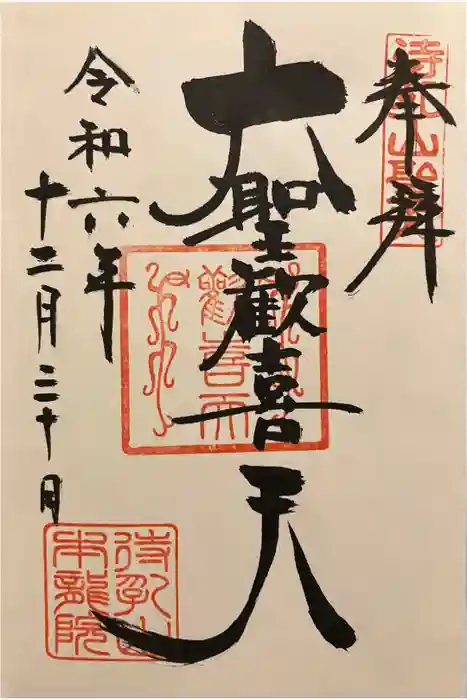 奉拝
待乳山聖
大聖歓喜天
歡喜天
令和六年
十二月三十日
待乳山
本龍院